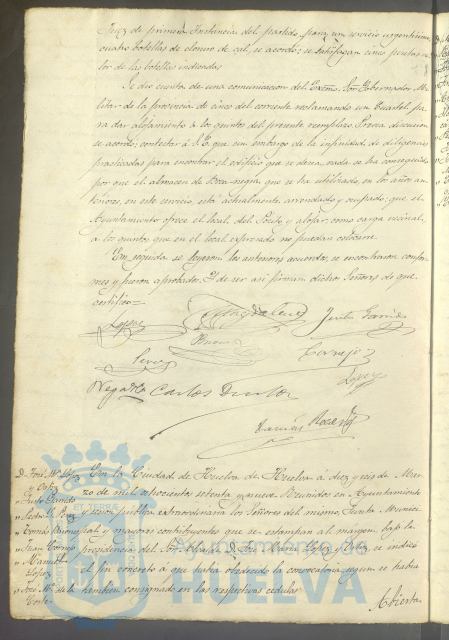 Juez de primera Instancia del partido, para un servicio urgentísimo
cuatro botellas de cloruro de cal, se acordó: se satisfagan cinco pesetas va-
lor de las botellas indicadas
Se dió cuenta de una comunicacion del Excmo. Sor. Gobernador Mi-
litar de la provincia de cinco del corriente reclamando un Cuartel pa-
ra dar alojamiento á los quintos del presente reemplazo. Previa discusion
se acordó: contestar á S.E. que sin embargo de la infinidad de diligencias
practicadas para encontrar el edificio que se desea, nada se ha conseguido,
por que el almacen de Boca-negra, que se ha utilizado, en los años an-
teriores, en este servicio, está actualmente arrendado y ocupado; que el
Ayuntamiento ofrece el local del Posito y alojar, como carga vecinal,
á los quintos que en el local espresado no puedan colocarse.
Em seguida se leyeron los anteriores acuerdos, se encontraron confor-
mes y fueron aprobados. Y de ser así firman dichos Señores de que
certifico=
Lopez
Justo Garrido
Bueno
Perez
Cornejo
Carlos
Lopez
D. José Mª Lopez
y Ortiz
" Justo Garrido
" Pedro G. Perez
" Tomás
" Juan Cornejo
" Manuel
Lopez
" José Mª de la
Corte
En la Ciudad de Huelva de Huelva á diez y seis de Mar-
zo de mil ochocientos setenta y nueve. Reunidos en Ayuntamiento
y sesion publica extraordinaria los Señores del mismo, Junta Munici-
pal y mayores contribuyentes que se estampan al margen, bajo la
presidencia del Sor. Alcalde D. José Maria Lopez y Ortiz, se indicó
el fin concreto á que habia obedecido la convocatoria, segun se habia
tambien consignado en las respectivas cedulas
Abierta
HUELVA